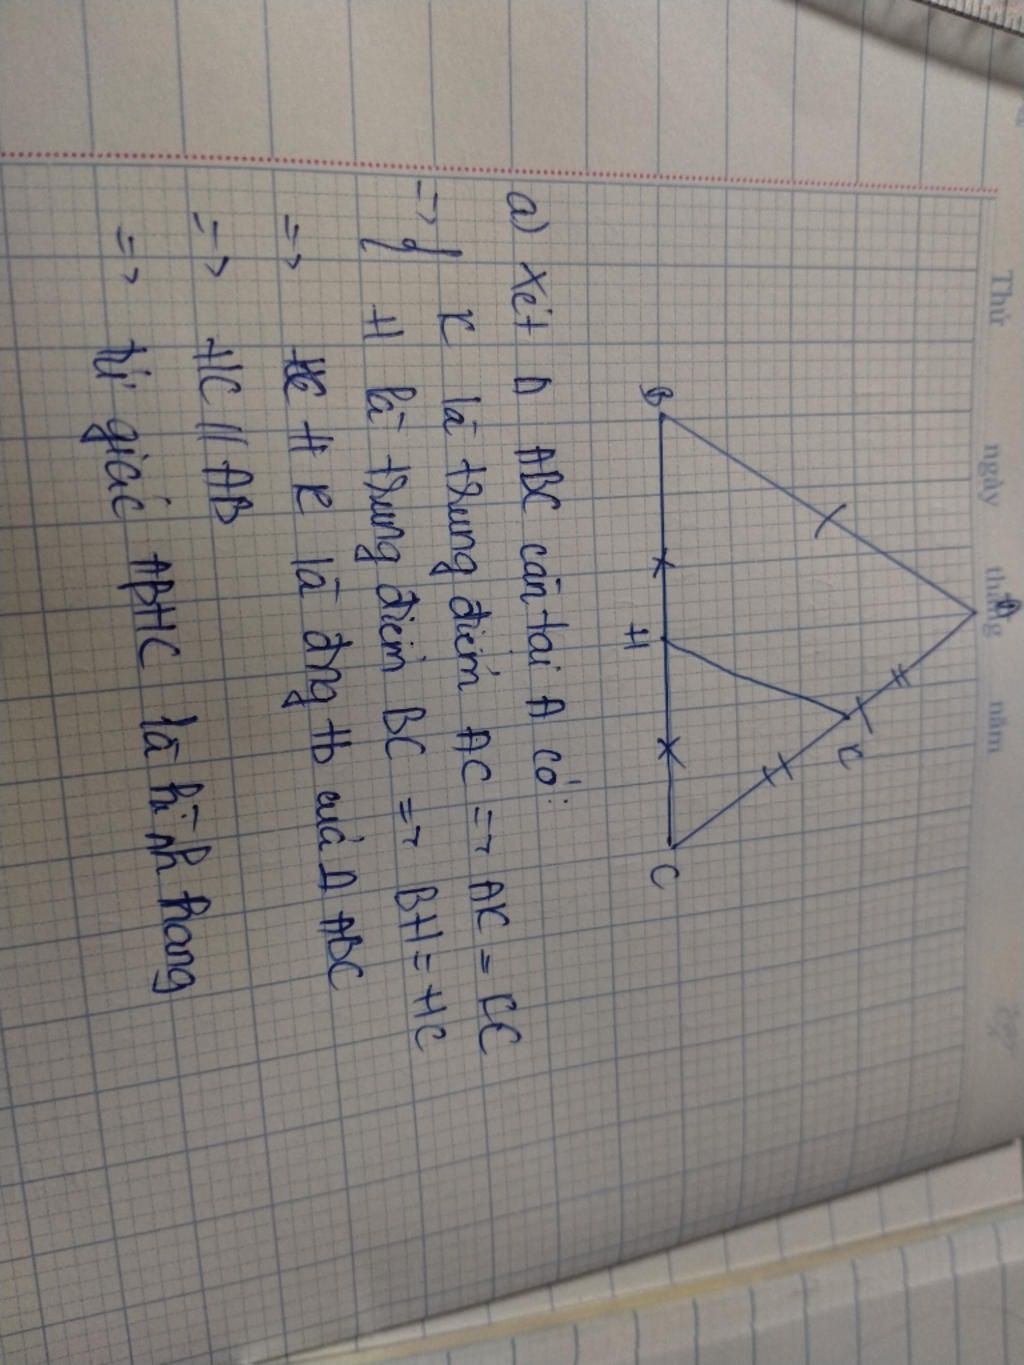 Thứ ngày tháng năm
A
B
H
C
K
a) Xét Δ ABC cân tại A có:
=> { K là trung điểm AC => AK = KC
H là trung điểm BC => BH = HC
=> HK là đng tb của Δ ABC
=> HK // AB
=> tứ giác ABHK là hình thang